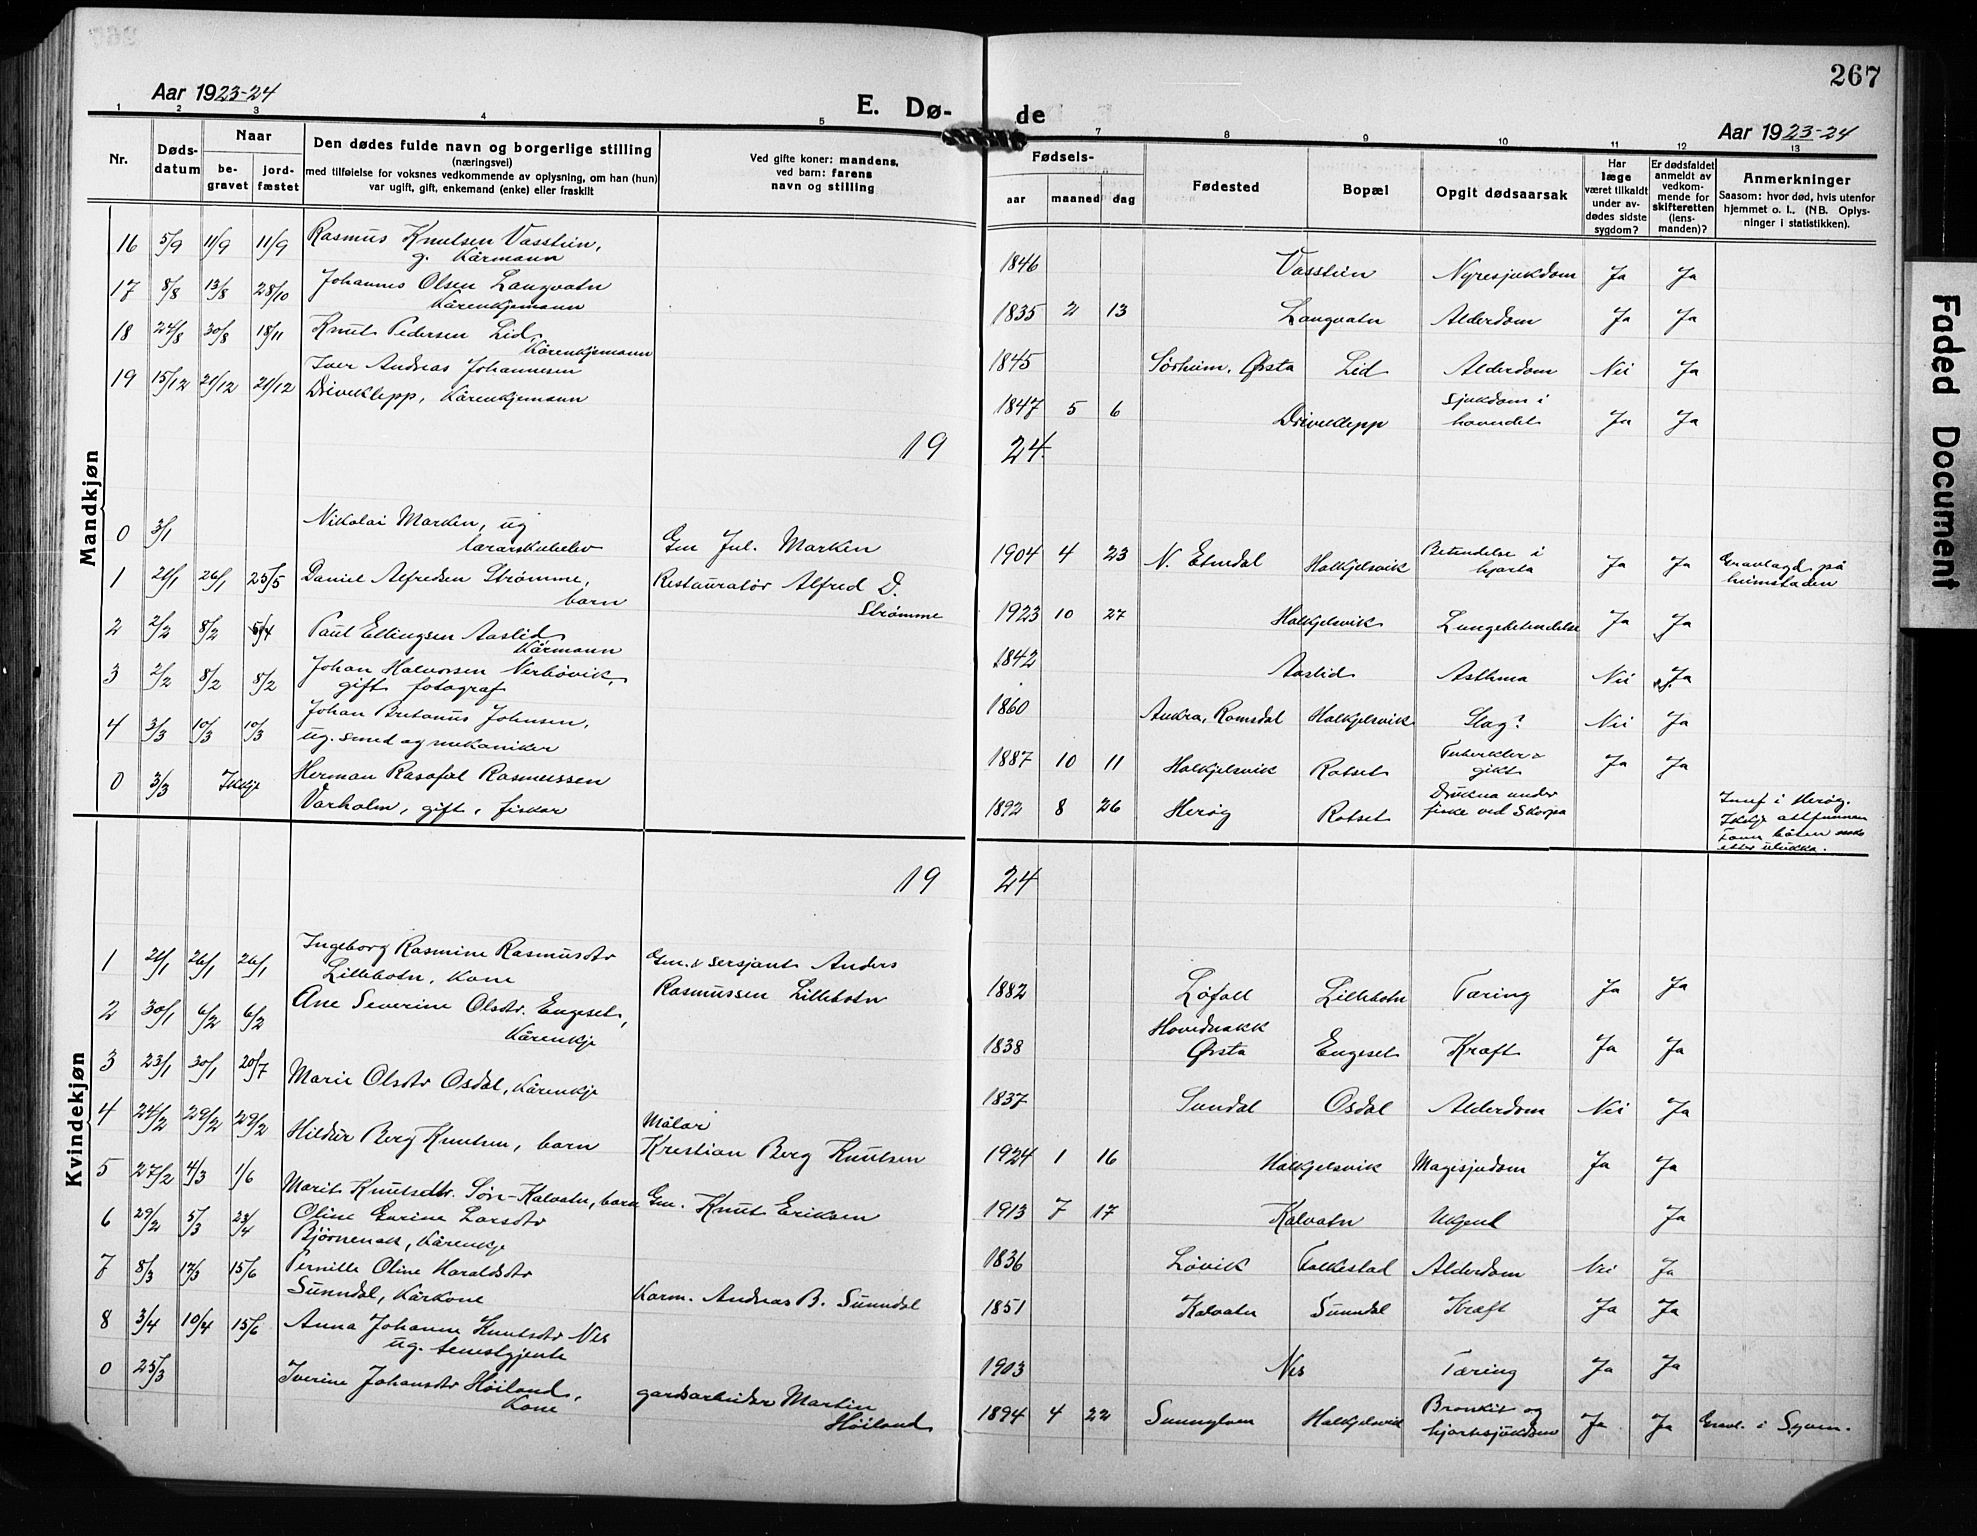 267
Aar 1923-24
E. Dø-
de
Aar 1923-24
1 2 3 4 5 7 8 9 10 11 12 13
Nr.
Døds-
datum
Naar
be-
gravet
jord-
fæstet
Den dødes fulde navn og borgerlige stilling
(næringsvei)
med tilføielse for voksnes vedkommende av oplysning, om han (hun)
var ugift, gift, enkemand (enke) eller fraskilt
Ved gifte koner: mandens,
ved barn: farens
navn og stilling
Fødsels-
aar maaned dag
Fødested
Bopæl
Opgit dødsaarsak
Har
læge
været tilkaldt
under av-
dødes sidste
sygdom?
Er dødsfaldet
anmeldt av
vedkom-
mende for
skifteretten
(lens-
manden)?
Anmerkninger
Saasom: hvor død, hvis utenfor
hjemmet o. l.. (NB. Oplys-
ninger i statistikken).
Mandkjøn
16 5/9 11/9 11/9 Rasmus Knutsen Vasstein,
g. Kårmann
1846 Vasstein Nyresjukdom Ja Ja
17 8/8 13/8 28/10 Johannes Olsen Langvatn
Kårenkjemann
1835 2 13 Langvatn Alderdom Ja Ja
18 24/8 30/8 18/11 Knut Pedersen Lid,
Kårenkjemann
1845 Sørheim, Ørsta Lid Alderdom Nei Ja
19 15/12 21/12 21/12 Iver Andreas Johannesen
Driveklepp, Kårenkjemann
1847 5 6 Driveklepp Sjukdom i
hovudet Ja Ja
19 24.
0 3/1 Nikolai Marken, ug
lærarskuleelev
Gm Jul. Marken
1904 4 23 N. Etnedal Halkjelsvik Betendelse i
hjarta Ja Ja Gravlagd på
heimstaden
1 21/1 26/1 25/5 Daniel Alfredsen Strømme,
barn
Restauratør Alfred D.
Strømme
1923 10 27 Halkjelsvik Lungebetendelse Ja Ja
2 2/2 8/2 5/4 Paul Ellingsen Aaslid
Kårmann
1842 Aaslid Asthma Nei Ja
3 2/2 8/2 8/2 Johan Halvorsen Nerbøvik,
gift fotograf
1860 Aukra, Romsdal Halkjelsvik Slag? Nei Ja
4 3/3 10/3 10/3 Johan Johnsen,
ug. smed og mekaniker
1887 10 11 Halkjelsvik Rotset Tuberkler
gikt Ja Ja
0 3/3 Ikkje Herman Rasmussen
Varholm, gift, fiskar
1892 8 26 Herøy Rotset Drukna under
fiske ved Skorpa
Innf i Herøy.
Ikkje attfunnen
båten
etter ulukka.
Kvindekjøn
19 24
1 21/1 26/1 26/1 Ingeborg Rasmine Rasmusdtr
Lillebotn, kone
Gm. & sersjant Anders
Rasmussen Lillebotn
1882 Løfoll Lillebotn Tæring Ja Ja
2 30/1 6/2 6/2 Ane Severine Olsdtr. Engeset,
Kårenkje
1838 Hovdenakk
Ørsta Engeset Kræft Ja Ja
3 23/1 30/1 20/7 Marie Olsdtr Osdal, Kårenkje
1837 Sundal Osdal Alderdom Nei Ja
4 24/2 29/2 29/2 Hildur Berg Knutsen, barn
Målar
Kristian Berg Knutsen
1924 1 16 Halkjelsvik Magesjudom Ja Ja
5 27/2 4/3 1/6 Marit Knutsdtr. Søre-Kalvatn, barn Gm. Knut Eriksen
1913 7 17 Kalvatn Ukjent Ja
6 29/2 5/3 23/4 Oline Larsdtr
Bjørnenak, Kårenkje
1836 Løvik Folkestad Alderdom Nei Ja
7 8/3 17/3 15/6 Pernille Oline Haraldsdtr
Sunndal, Kårkone
Karm. Andreas B. Sunndal
1851 Kalvatn Sunndal Kræft Ja Ja
8 3/4 10/4 15/6 Anna Johanne Knutsdtr Nes
ug. tenestgjente
1903 Nes Tæring Ja Ja
0 25/3 Iverine Johansdtr Høiland,
kone
gardsarbeider Martin
Høiland
1894 4 22 Sunnylven Halkjelsvik Bronkit og
hjartesjukdom Ja Ja Gravl. i
Faded Document